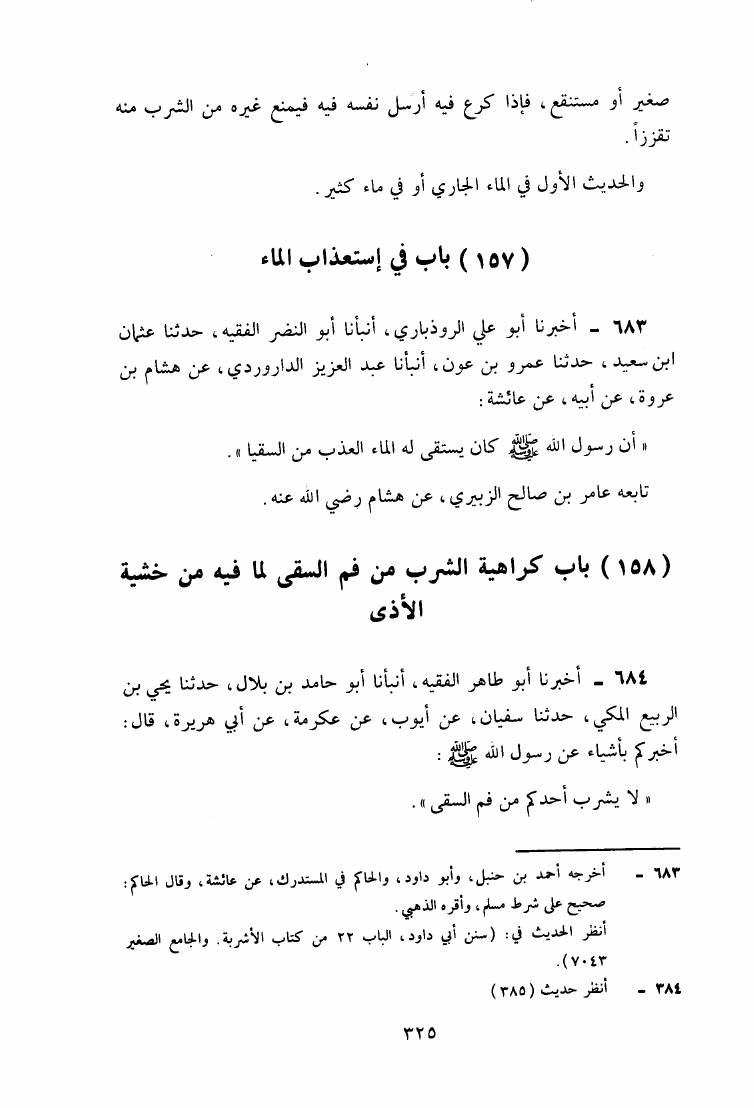 صغير أو مستنقع، فإذا كرع فيه أرسل نفسه فيه فيمنع غيره من الشرب منه
تقززاً.
والحديث الأول في الماء الجاري أو في ماء كثير.
(١٥٧) باب في إستعذاب الماء
٦٨٣ ـ أخبرنا أبو علي الروذباري، أنبأنا أبو النضر الفقيه، حدثنا عثمان
ابن سعيد، حدثنا عمرو بن عون، أنبأنا عبد العزيز الداروردي، عن هشام بن
عروة، عن أبيه، عن عائشة:
« أن رسول الله ﷺ كان يستقى له الماء العذب من السقيا ».
تابعه عامر بن صالح الزبيري، عن هشام رضي الله عنه.
(١٥٨) باب كراهية الشرب من فم السقى لما فيه من خشية
الأذى
٦٨٤ ـ أخبرنا أبو طاهر الفقيه، أنبأنا أبو حامد بن بلال، حدثنا يحي بن
الربيع المكي، حدثنا سفيان، عن أيوب، عن عكرمة، عن أبي هريرة، قال:
أخبركم بأشياء عن رسول الله ﷺ :
« لا يشرب أحدكم من فم السقى ».
٦٨٣ ـ أخرجه أحمد بن حنبل، وأبو داود، والحاكم في المستدرك، عن عائشة، وقال الحاكم:
صحيح على شرط مسلم، وأقره الذهبي.
أنظر الحديث في: (سنن أبي داود، الباب ٢٢ من كتاب الأشربة. والجامع الصغير
٧٠٤٣).
٣٨٤ ـ أنظر حديث (٣٨٥)
٣٢٥